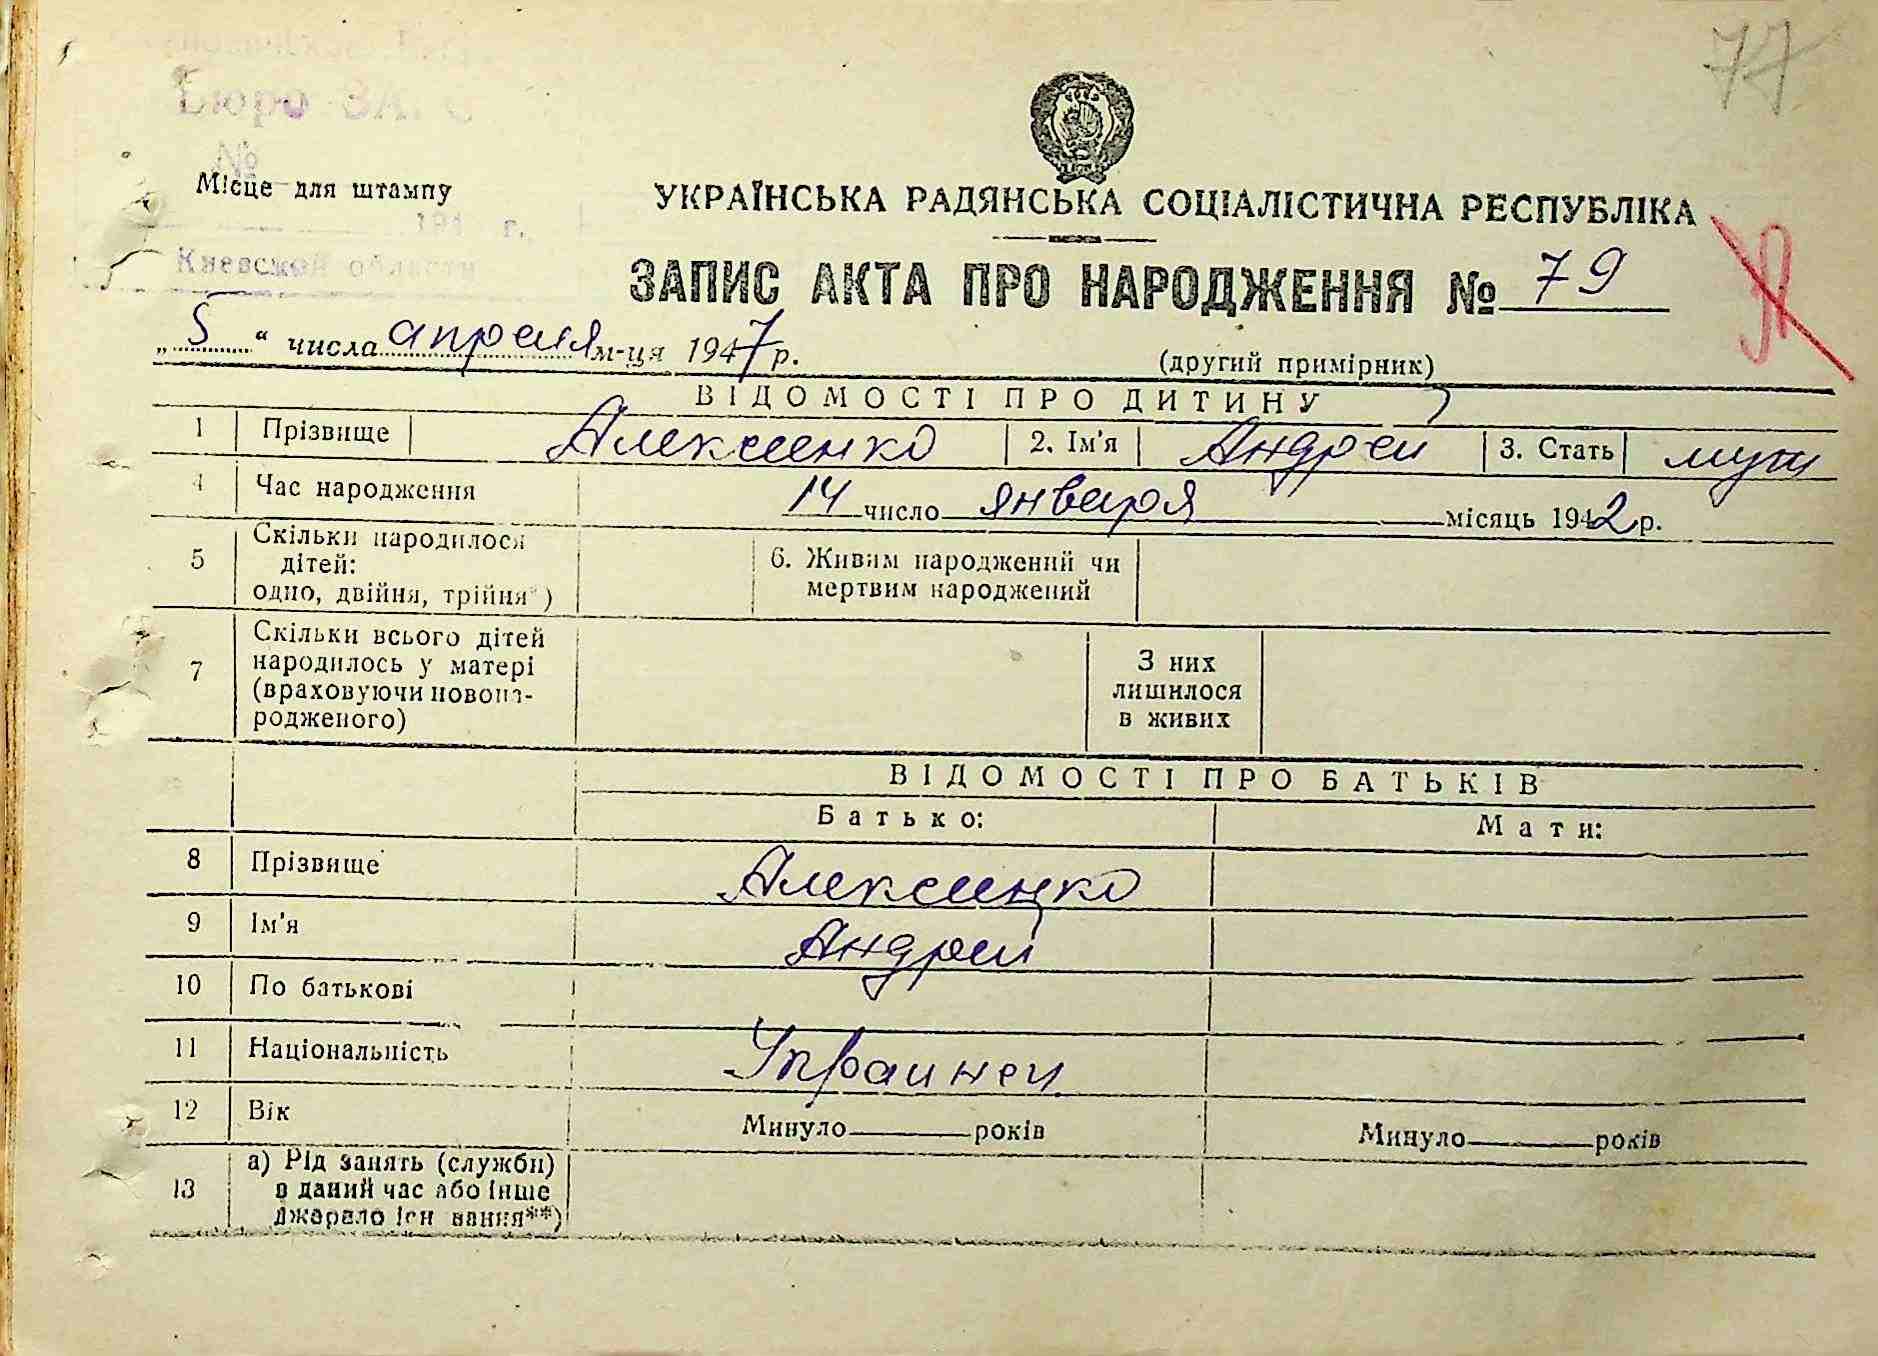 77
Бюро ЗАГС
№
Місце для штампу
194 г.
Киевской области
УКРАЇНСЬКА РАДЯНСЬКА СОЦІАЛІСТИЧНА РЕСПУБЛІКА
ЗАПИС АКТА ПРО НАРОДЖЕННЯ № 79
„ 5 “ числа апреля м-ця 1947 р.
(другий примірник)
ВІДОМОСТІ ПРО ДИТИНУ
1 Прізвище Алексиенко 2. Ім'я Андрей 3. Стать муж
4 Час народження 14 число января місяць 1942 р.
5 Скільки народилося
дітей:
одно, двійня, трійня*)
6. Живим народжений чи
мертвим народжений
7 Скільки всього дітей
народилось у матері
(враховуючи новона-
родженого)
З них
лишилося
в живих
ВІДОМОСТІ ПРО БАТЬКІВ
Батько: Мати:
8 Прізвище Алексиенко
9 Ім'я Андрей
10 По батькові
11 Національність Украинец
12 Вік Минуло року років Минуло років
13 а) Рід занять (служби)
в даний час або інше
джерело існування**)